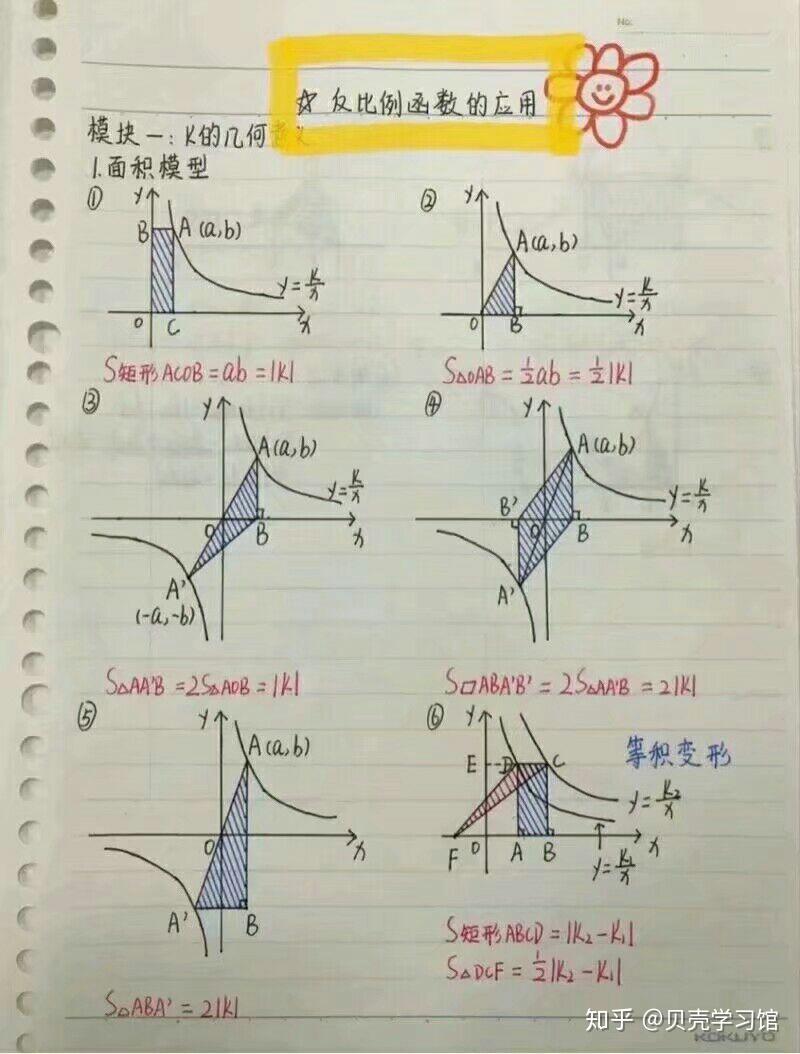 No:
☆ 反比例函数的应用
模块一:K的几何意义
1.面积模型
①
y
B
A(a,b)
y=k/x
O
C
x
S矩形ACOB=ab=|K|
②
y
A(a,b)
y=k/x
O
B
x
S△OAB=½ab=½|K|
③
y
A(a,b)
y=k/x
O
B
x
A'
(-a,-b)
S△AA'B=2S△AOB=|K|
④
y
A(a,b)
y=k/x
B'
O
B
x
A'
S□ABA'B'=2S△AA'B=2|K|
⑤
y
A(a,b)
O
x
A'
B
S△ABA'=2|K|
⑥
y
等积变形
E
D
C
y=K₂/x
F
O
A
B
x
y=K₁/x
S矩形ABCD=|K₂-K₁|
S△DCF=½|K₂-K₁|
知乎 @贝壳学习馆
KOKUYO